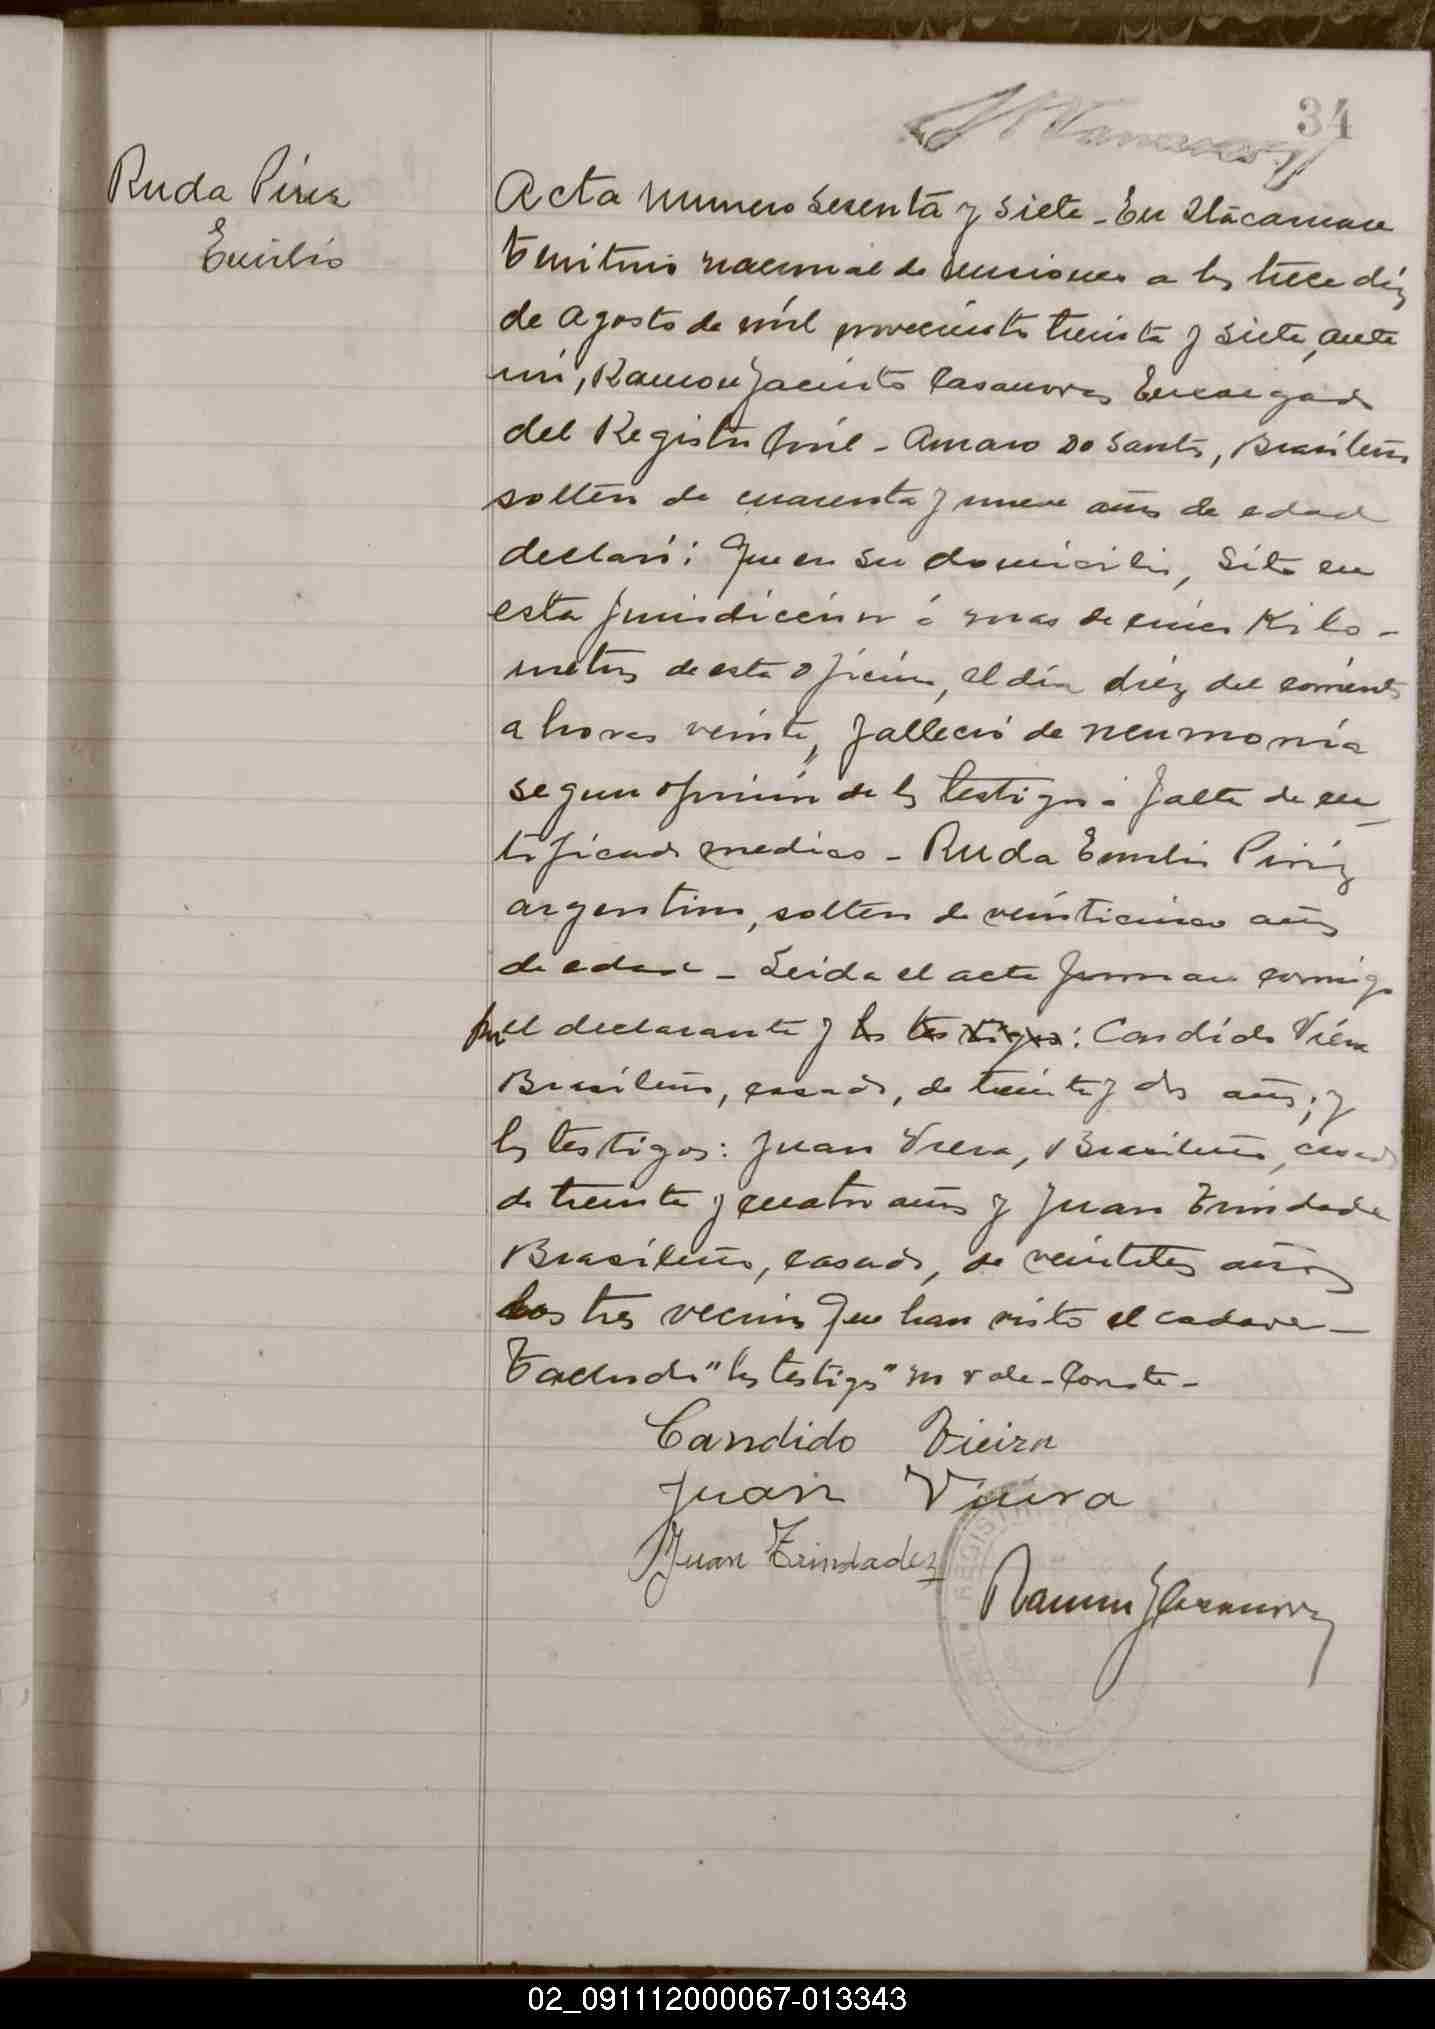 34
Ruda Pirez
Emilio
Acta numero sesenta y siete - En Itacaruare
Territorio nacional de misiones a los trece días
de Agosto de mil novecientos treinta y siete, ante
mi, Ramon Jacinto Casanovas Encargado
del Registro Civil - Amaro Do Santos, Brasileño
soltero de cuarenta y nueve años de edad
declaró: Que en su domicilio, sito en
esta jurisdiccion á mas de cinco Kilo-
metros de esta oficina, el día diéz del corriente
a horas veinte, falleció de neumonía
segun opinión de los testigos á falta de cer_
tificado medico - Ruda Emilio Piriz
argentino, soltero de veinticinco años
de edad - Leida el acta firman conmigo
por el declarante y los testigos: Candido Viera
Brasileño, casado, de treinta y dos años; y
los testigos: Juan Viera, Brasileño, casado
de treinta y cuatro años y Juan Trindade
Brasileño, casado, de veintitres años
Los tres vecinos que han visto el cadaver_
Tachado "los testigos" no vale - Conste -
Candido Vieira
Juan Vieira
Juan Trindadez
Ramon J Casanovas
REGISTR
02_091112000067-013343